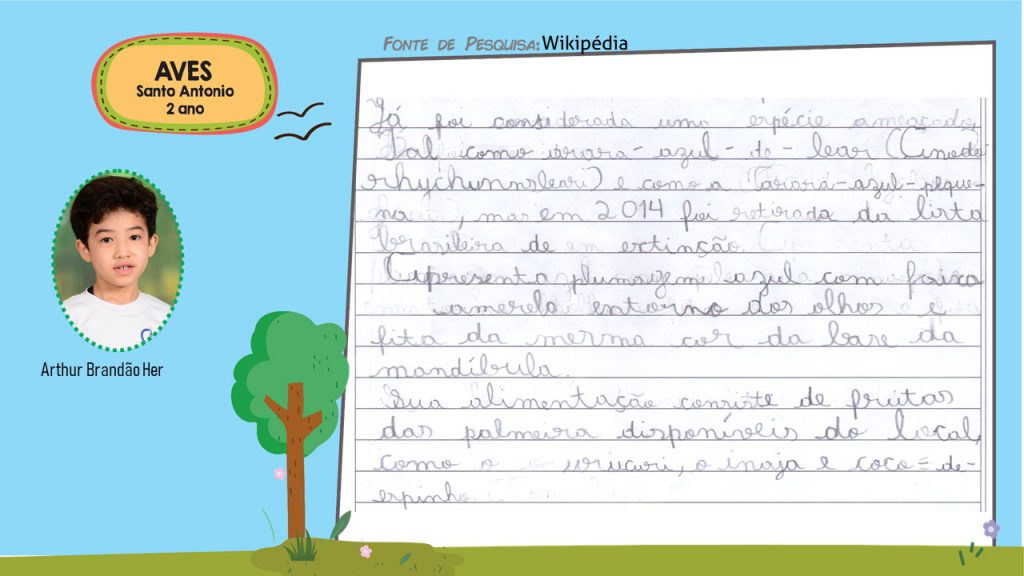 AVES
Santo Antonio
2 ano
FONTE DE PESQUISA: Wikipédia
Arthur Brandão Her
Já foi considerada uma espécie ameaçada,
Tal como arara-azul-de-lear (
e como a (arara-azul-peque-
na), mas em 2014 foi retirada da lista
brasileira de em extinção.
apresenta plumagem azul com faixa
amerela entorno dos olhos e
fita da mesma cor da base da
mandíbula.
Sua alimentação consiste de frutas
das palmeira disponíveis do local,
como o uricuri, o inaja e coco=de-
espinho.